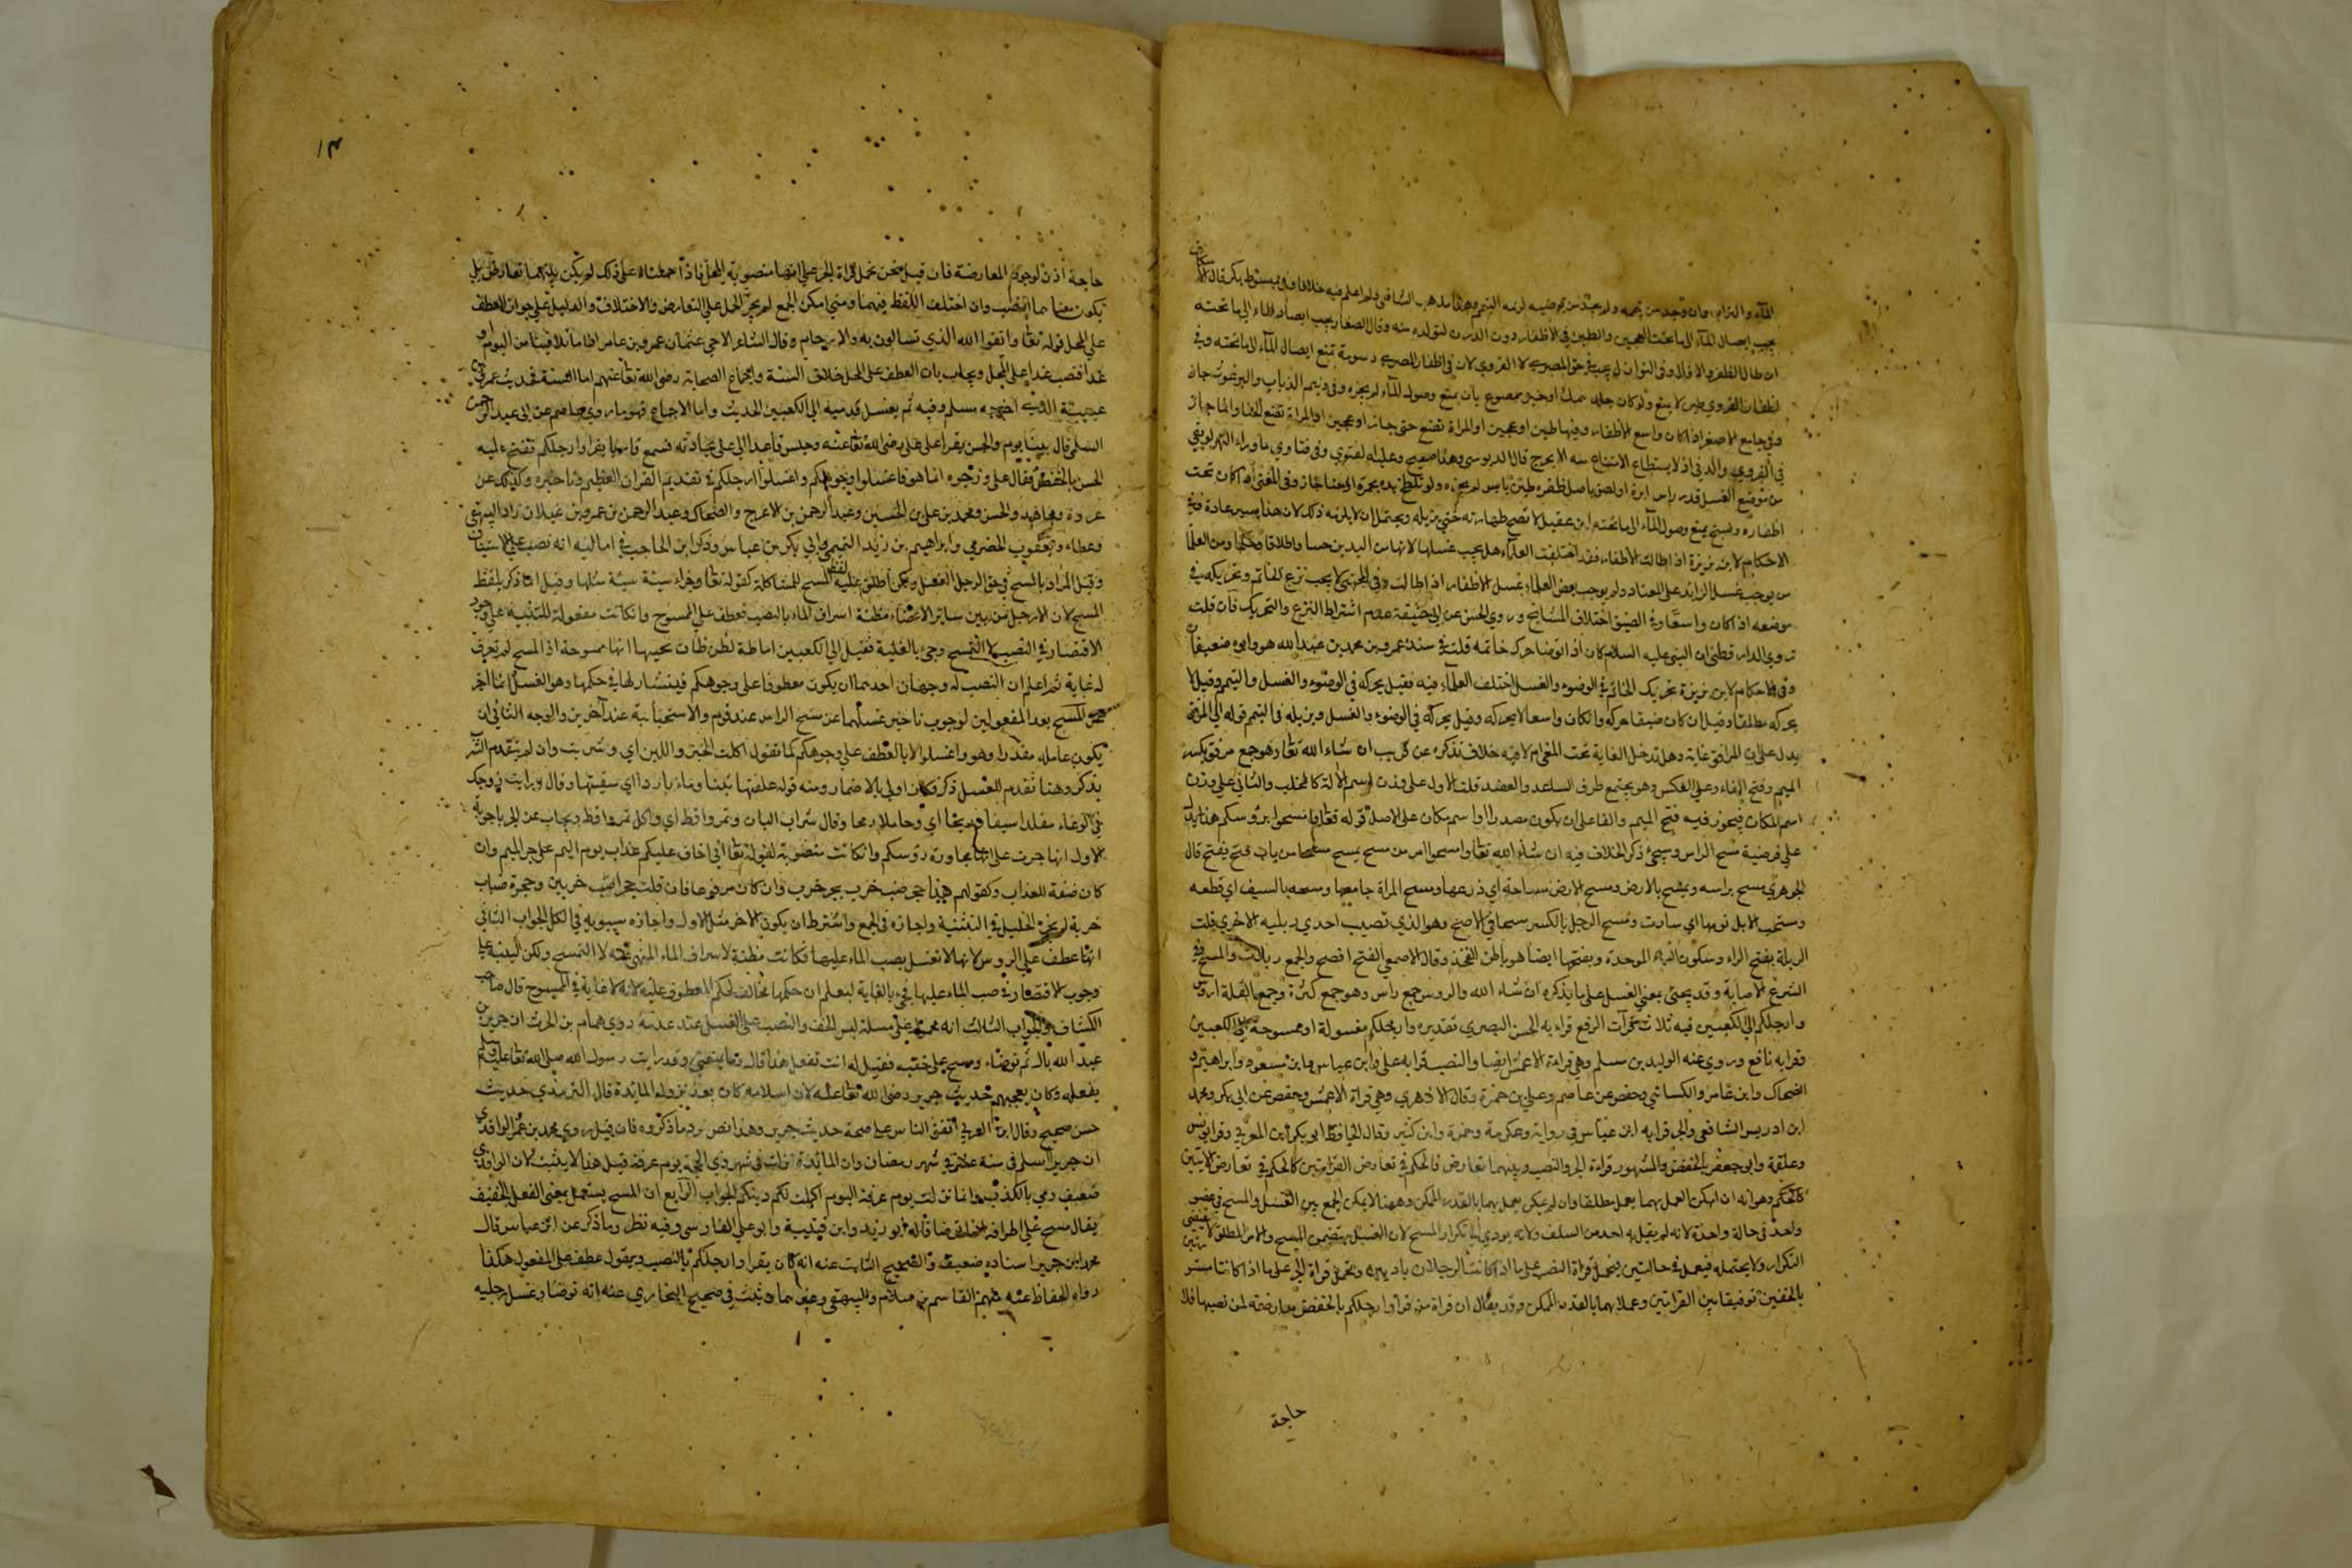 الماء والتراب وان وجد من يممه ولم يجد من يوضيه لزمه التيمم وهذا مذهب الشافعي ولم اعلم فيه خلافا وفي مبسوط بكر قال الاسكاف
يجب ايصال الماء الى ما تحت العجين والطين في الاظفار دون الدرن لتولده منه وقال الصفار يجب ايصال الماء الى ما تحته
ان طال الظفر والا فلا وفي النوازل يجب في حق المصري لا القروي لان في اظفار المصري دسومة تمنع ايصال الماء الى ما تحته وفي
اظفار القروي طين لا يمنع ولو كان جلد سمك او خبز ممضوغ يابس يمنع وصول الماء لم يجزه وفي ونيم الذباب والبرغوث جاز
وفي جامع الاصغر اذا كان واسع الاظفار وفيها طين او عجين او المراة تضع الحنا والما جاز
في القروي والمدني اذ لا يستطاع الامتناع منه الا بحرج قال الدبوسي وهذا صحيح وعليه الفتوى وفي فتاوي ما وراء النهر لو بقي
من موضع الغسل قدر راس ابرة او لصق باصل ظفره طين يابس لم يجزه ولو تلطخ يده بخمرة او حنا جاز وفي المغني اذا كان تحت
اظفاره وسخ يمنع وصول الماء الى ما تحته ابن عقيل لا تصح طهارته حتى يزيله ويحتمل ان لا يلزمه ذلك لان هذا يسير عادة وفي
الاحكام لابن بزيزة اذا طالت الاظفار فقد اختلفت العلماء هل يجب غسلها لانها من اليدين حسا واطلاقا وحكما ومن العلماء
من يوجب غسل الزائد على المعتاد ولم يوجب بعض العلماء غسل الاظفار اذا طالت وفي المجتبى لا يجب نزع الخاتم وتحريكه في
موضعه اذا كان واسعا وفي الضيق اختلاف المشايخ وروي الحسن عن ابي حنيفة عدم اشتراط النزع والتحريك فان قلت
تروي الدار قطني ان النبي عليه السلام كان اذا توضا حرك خاتمه قلت في سنده عمرو بن محمد بن عبد الله هو وابوه ضعيفان
وفي الاحكام لابن بزيزة تحريك الخاتم في الوضوء والغسل اختلف العلماء فيه فقيل يحركه في الوضوء والغسل والتيمم وقيل لا
يحركه مطلقا وقيل ان كان ضيقا حركه وان كان واسعا لا يحركه وقيل يحركه في الوضوء والغسل ويزيله في التيمم قوله الى المرافق
يدل على ان المرافق غاية وهل تدخل الغاية تحت المغيا ام لا فيه خلاف نذكره عن قريب ان شاء الله تعا وهو جمع مرفق بكسر
الميم وفتح الفاء وعلى العكس وهو مجتمع طرف الساعد والعضد قلت الاول على وزن اسم الآلة كالمحلب والثاني على وزن
اسم المكان فيجوز فيه فتح الميم والفا على ان يكون مصدرا او اسم مكان على الاصل قوله تعا وامسحوا برؤسكم هذا يدل
على فرضية مسح الراس وسيجئ ذكر الخلاف فيه ان شاء الله تعا وامسحوا امر من مسح يمسح مسحا من باب فتح يفتح قال
الجوهري مسح براسه وتمسح بالارض ومسح الارض مساحة اي ذرعها ومسح المراة جامعها ومسحه بالسيف اي قطعه
ومسحت الابل يومها اي سارت ومسح الرجل بالكسر مسحا في الاصح وهو الذي تصيب احدي ربلتيه الاخرى قلت
الربلة بفتح الراء وسكون الباء الموحدة وبفتحها ايضا هو باطن الفخذ وقال الاصمعي الفتح افصح والجمع ربلات والمسح في
الشرع الاصابة وقد يجئ بمعنى الغسل على ما يذكره ان شاء الله والروس جمع راس وهو جمع كثرة وجمع القلة ارؤس
وارجلكم الى الكعبين فيه ثلاث قرآت الرفع قراء به الحسن البصري تقديره وارجلكم مغسولة او ممسوحة الى الكعبين
وقرا به نافع ورويى عنه الوليد بن مسلم وهي قراءة الاعمش ايضا والنصب قرا به علي وابن عباس وابن مسعود وابراهيم و
الضحاك وابن عامر والكسائي وحفص عن عاصم وعلي بن حمزة وقال الازهري وهي قراة الاعمش وحفص عن ابي بكر ومحمد
ابن ادريس الشافعي والجر قرا به ابن عباس في رواية وعكرمة وحمزة وابن كثير وقال الحافظ ابو بكر ابن العربي وقرا انس
وعلقمة وابو جعفر بالخفض والمشهور قراءة الجر والنصب وبينهما تعارض فالحكم في تعارض القراءتين كالحكم في تعارض الآيتين
كالحكم وهو انه ان امكن العمل بهما يعمل مطلقا وان لم يمكن يعمل بهما بالقدر الممكن وههنا لا يمكن الجمع بين الغسل والمسح في عضو
واحد في حالة واحدة لانه لم يقل به احد من السلف ولانه يودي الى تكرار المسح لان الغسل يتضمن المسح والامر المطلق لا يقتضي
التكرار ولا يحتمله فيعمل في حالتين فيحمل قراة النصب على ما اذا كانت الرجلان باديتين وتحمل قراة الجر على ما اذا كانتا مستترتين
بالخفين توفيقا بين القراتين وعملا بهما بالقدر الممكن وقد يقال ان قراة من قرا وارجلكم بالخفض معارضة لمن نصبها فلا
حاجة
١٣
حاجة اذن لوجود المعارضة فان قيل نحن نحمل قراة الجر على انها منصوبة المحل فاذا حملناه على ذلك لم يكن بينهما تعارض بل
يكون معناهما النصب وان اختلف اللفظ فيهما ومتى امكن الجمع لم يجز الحمل على التعارض والاختلاف والدليل على جواز العطف
على المحل قوله تعا واتقوا الله الذي تسالون به والارحام وقال الشاعر الاحي عثمان عمرو بن عامر اذا ما تلاقينا من اليوم او
غدا فنصب غدا على المحل ويجاب بان العطف على المحل خلاف السنة واجماع الصحابة رضي الله تعا عنهم اما السنة فحديث عمرو بن
عبسة الذي اخرجه مسلم وفيه ثم يغسل قدميه الى الكعبين الحديث واما الاجماع فهو ما روي عاصم عن ابي عبد الرحمن
السلمي قال بينا يوم والحسن يقرا على علي رضي الله تعا عنه وجليس قاعد الى علي يحادثه فسمع قارئا يقرا وارجلكم ففتح عليه
الحسن بالخفض فقال علي وزجره انما هو فاغسلوا وجوهكم واغسلوا ارجلكم في تقديم القران العظيم وتاخيره وكذلك عن
عروة ومجاهد والحسن ومحمد بن علي بن الحسين وعبد الرحمن بن الاعرج والضحاك وعبد الرحمن بن عمرو بن غيلان زاد البيهقي
وعطاء ويعقوب الحضرمي وابراهيم بن زيد التيمي وابي بكر بن عياش وذكر ابن الحاجب في اماليه انه نصب على الاستيناف
وقيل المراد بالمسح في حق الرجل الغسل ولكن اطلق عليه لفظ المسح للمشاكلة كقوله تعا وجزاء سيئة سيئة مثلها وقيل انما ذكر بلفظ
المسح لان الارجل من بين سائر الاعضاء مظنة اسراف الماء بالنصب فعطف على الممسوح وان كانت مغسولة للتنبيه على وجوب
الاقتصار في الصب لا للتمسح وجئ بالغاية فقيل الى الكعبين اماطة لظن ظان يحسبها انها ممسوحة اذ المسح لم تعرف
له غاية ثم اعلم ان النصب له وجهان احدهما ان يكون معطوفا على وجوهكم فيتشاركها في حكمها وهو الغسل انما اخر
المسح بعد المفعولين لوجوب تاخير غسلهما عن مسح الراس عند قوم والاستحبابية عند آخرين والوجه الثاني ان
يكون عامله مقدرا وهو واغسلوا لا بالعطف على وجوهكم كما تقول اكلت الخبز واللبن اي وشربت وان لم يتقدم الشرب
يذكر وهنا تقدم للغسل ذكر فكان اولى بالاضمار ومنه قوله علفتها تبنا وماء باردا اي سقيتها وقال ورايت زوجك
في الوغاء متقلدا سيفا ورمحا اي وحاملا رمحا وقال شراب البان وتمر واقط اي واكل تمر واقط ويجاب عن الجر باجوبة
الاول انها جرت على مجاورة رؤسكم وان كانت منصوبة لقوله تعا اني اخاف عليكم عذاب يوم اليم على جر الميم وان
كان صفة للعذاب وكقولهم هذا جحر ضب خرب بجر خرب وان كان مرفوعا فان قلت جحرا ضب خربين وجحرة ضباب
خربة لم يجز الخليل في التثنية واجازه في الجمع واشترط ان يكون الاخر مثل الاول واجازه سيبويه في الكل الجواب الثاني
انها عطف على الروس لانها لا تغسل بصب الماء عليها فكانت مظنة لاسراف الماء المنهي عنه لا التمسح ولكن لينبه على
وجوب الاقتصار في صب الماء عليها فجئ بالغاية ليعلم ان حكمها مخالف لحكم المعطوف عليه لانه لا غاية في الممسوح قال صاحب
الكشاف والجواب الثالث انه محمول على مسئلة لبس الخف والنصب على الغسل عند عدمه روي همام بن الحرث ان جرير بن
عبد الله بال ثم توضاء ومسح على خفيه فقيل له انت تفعل هذا قال وما يمنعني وقد رايت رسول الله صلى الله تعا عليه وسلم
يفعله وكان يعجبهم حديث جرير رضي الله تعا عنه لان اسلامه كان بعد نزول المائدة قال الترمذي حديث
حسن صحيح وقال ابن العربي اتفق الناس على صحة حديث جرير وهذا نص يرد ما ذكروه فان قيل روي محمد بن عمر الواقدي
ان جريرا اسلم في سنة عشر في شهر رمضان وان المائدة نزلت في شهر ذي الحجة يوم عرفة قيل هذا لا يثبت لان الواقدي
ضعيف رمي بالكذب وانما نزلت يوم عرفة اليوم اكملت لكم دينكم الجواب الرابع ان المسح يستعمل بمعنى الغسل الخفيف
يقال مسح على اطرافه اذا توضا قاله ابو زيد وابن قتيبة وابو علي الفارسي وفيه نظر وما ذكر عن ابن عباس قال
محمد ابن جرير اسناده ضعيف والصحيح الثابت عنه انه كان يقرا وارجلكم بالنصب ويقول عطف على المغسول هكذا
رواه الحفاظ عنه منهم القاسم بن سلام والبيهقي وغيرهما وثبت في صحيح البخاري عنه انه توضا وغسل رجليه